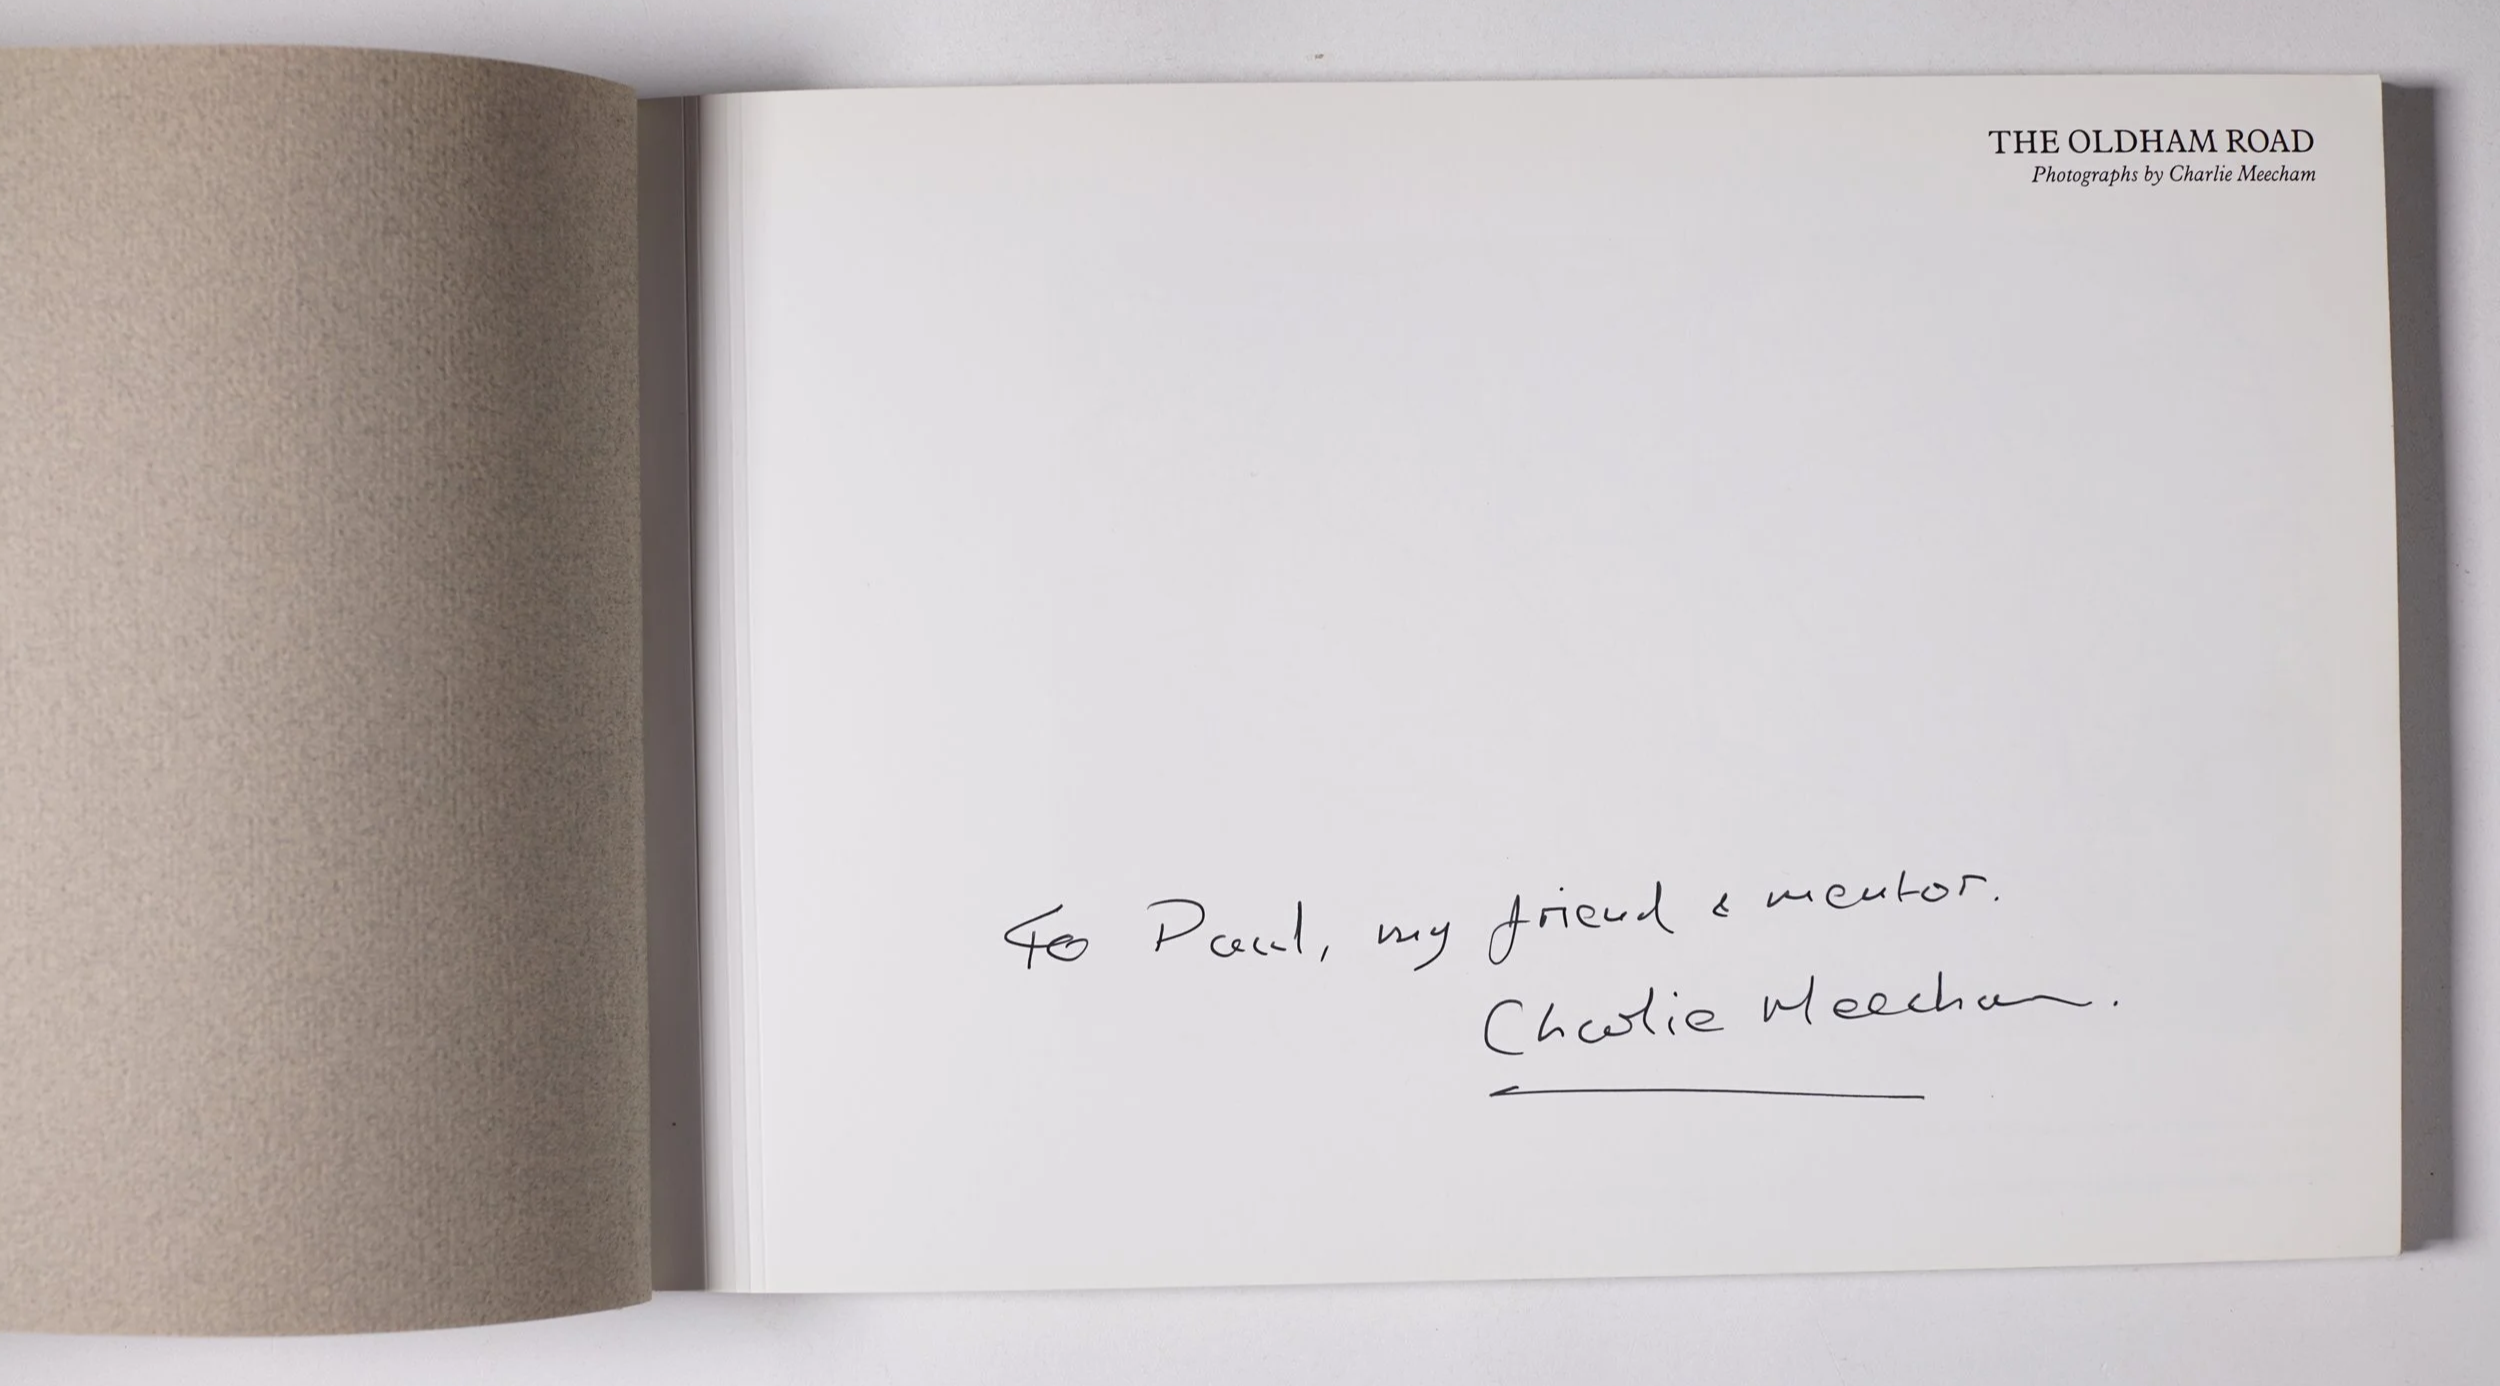 THE OLDHAM ROAD
Photographs by Charlie Meecham
To Paul, my friend & mentor.
Charlie Meecham.